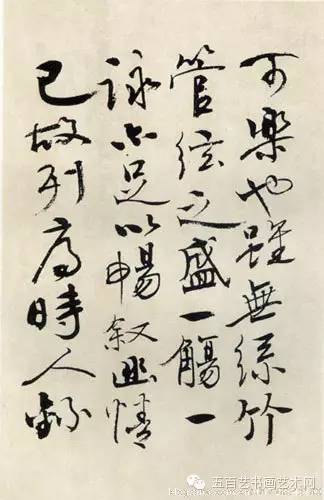 可樂也雖無絲竹
管絃之盛一觴一
詠亦足以暢叙幽情
已故列序時人錄
五百艺书画艺术网